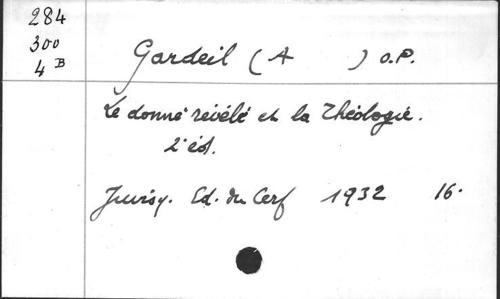 284
300
4 B
Gardeil (A ) O.P.
Le donné révélé et la Théologie.
2e éd.
Juvisy. Ed. du Cerf 1932 16.